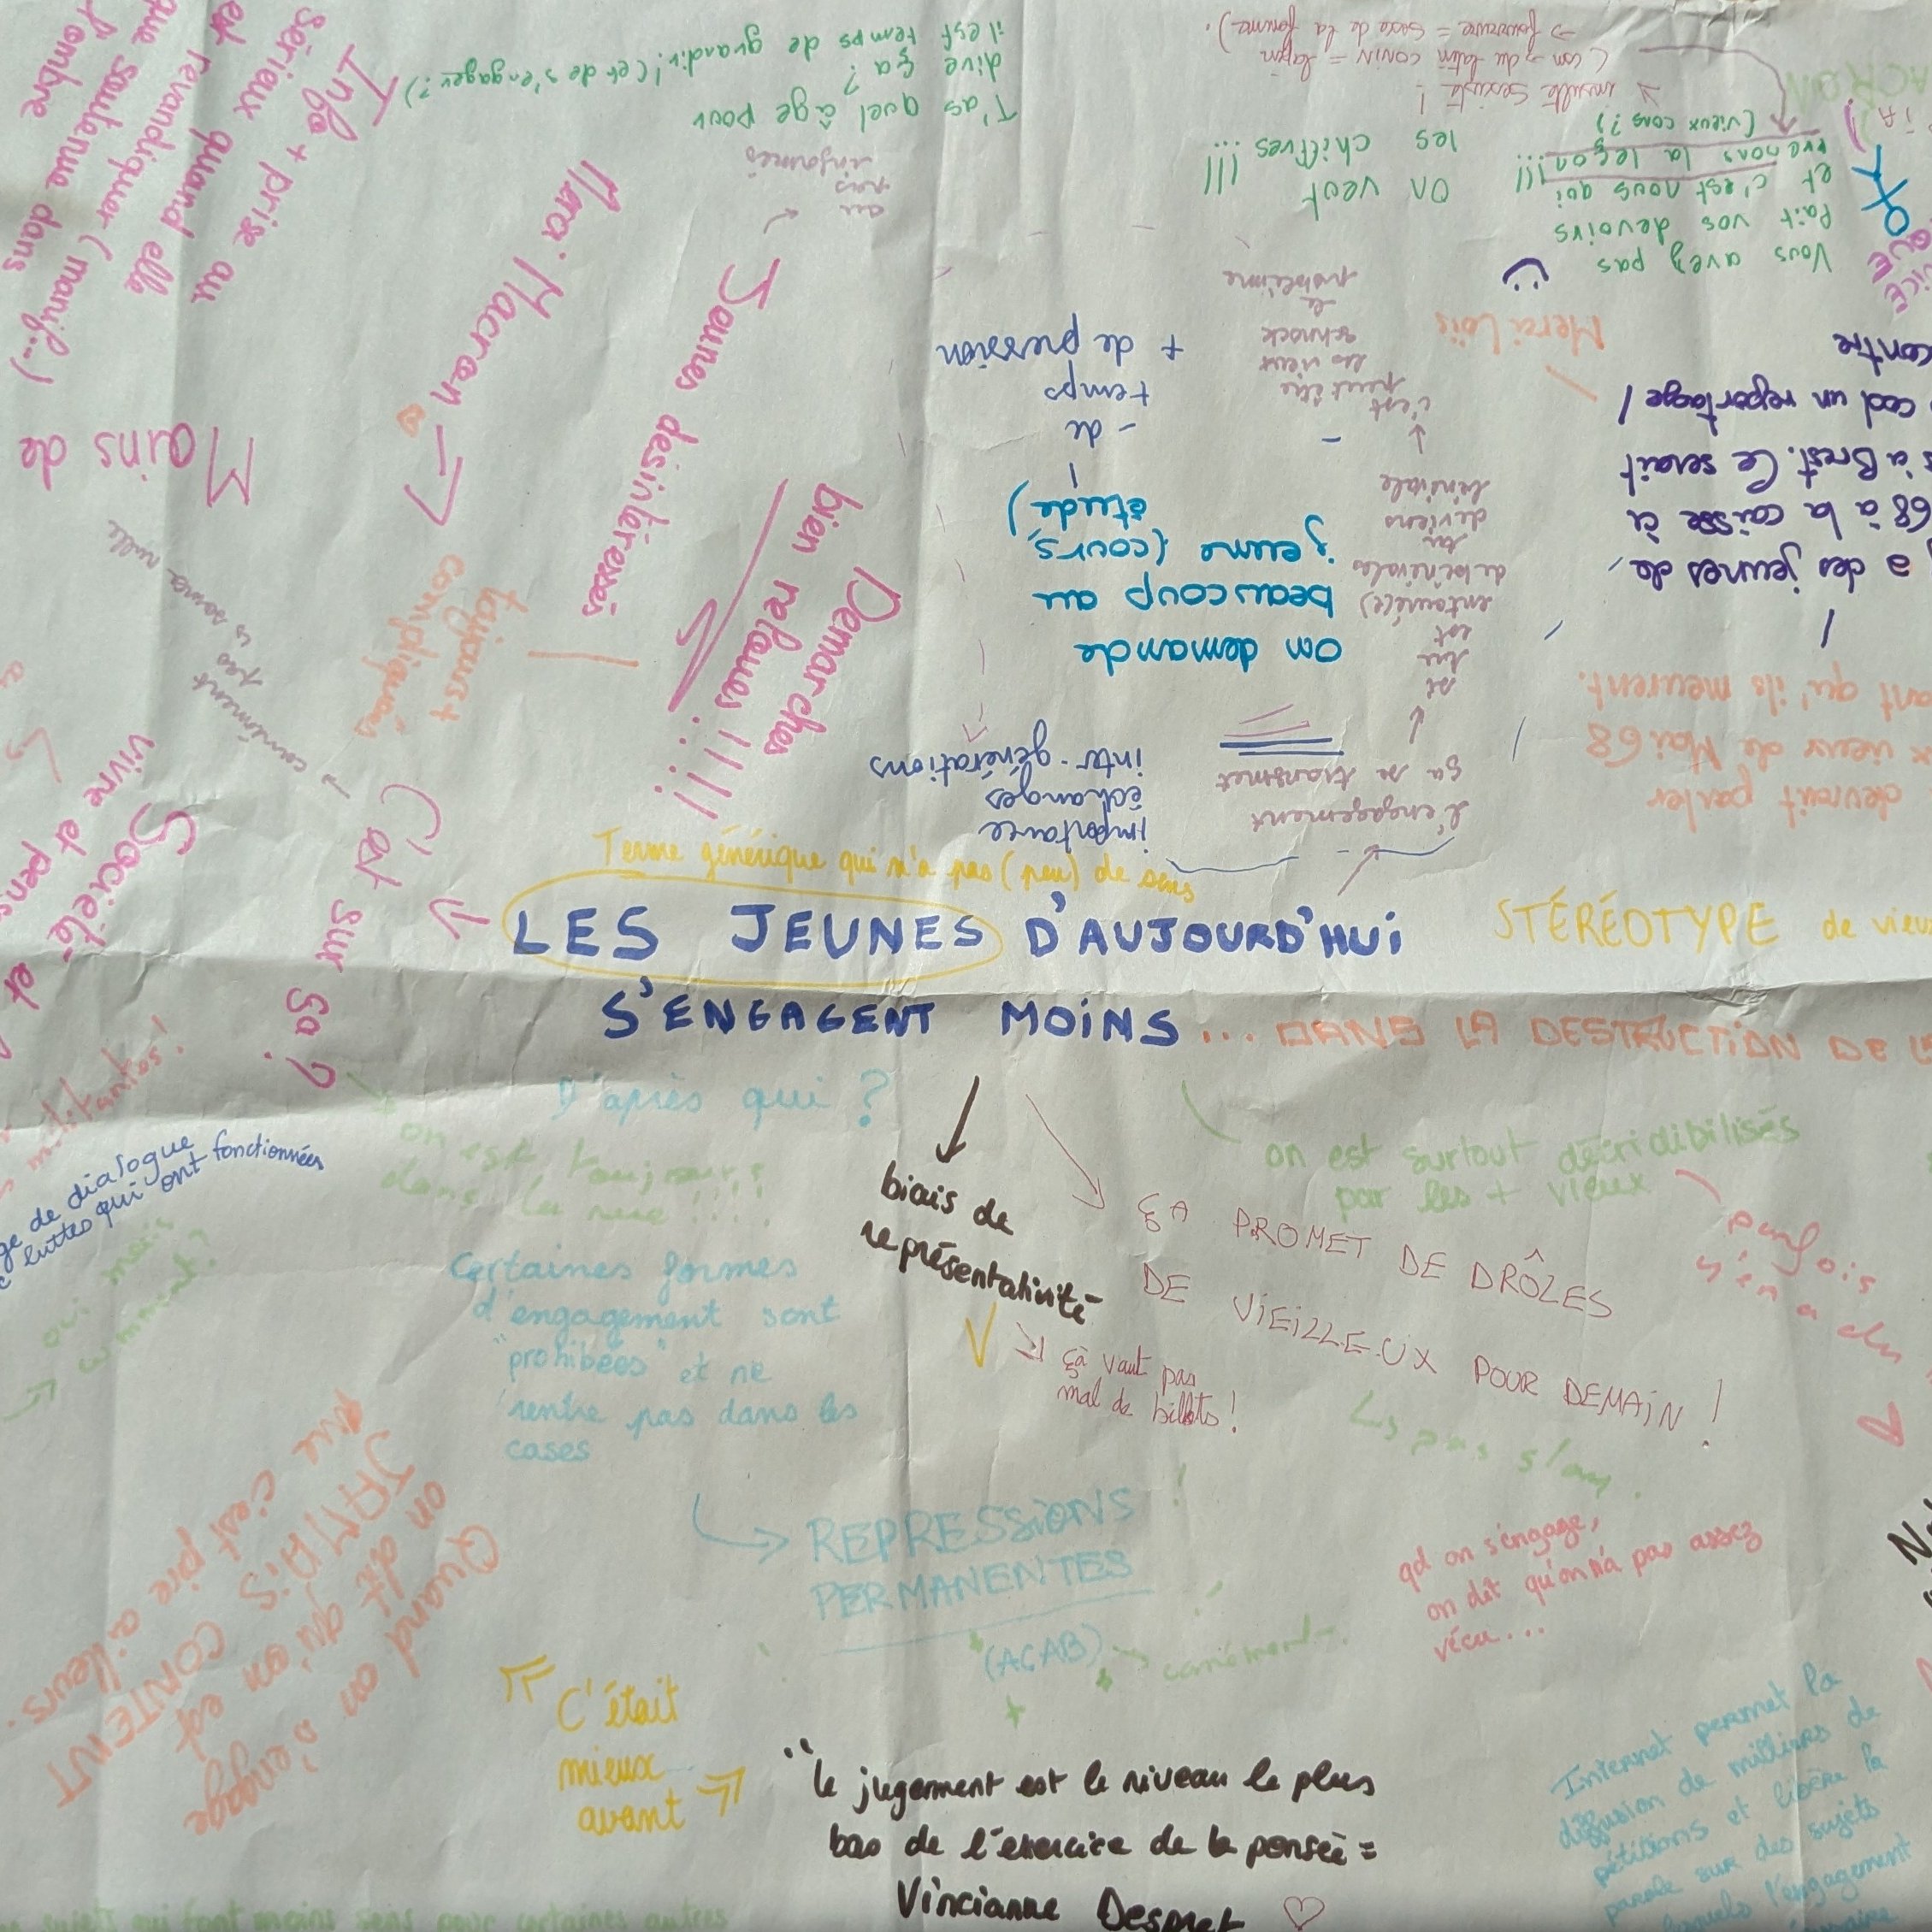 Terme générique qui n'a pas (peu) de sens
LES JEUNES D'AUJOURD'HUI
S'ENGAGENT MOINS
... DANS LA DESTRUCTION DE
STÉRÉOTYPE de
D'après qui ?
on est toujours
dans la rue !!!!
Certaines formes
d'engagement sont
"prohibées" et ne
rentre pas dans les
cases
REPRESSIONS
PERMANENTES
(ACAB)
carrément
biais de
représentativité
çà vaut pas
mal de billets !
ÇA PROMET DE DRÔLES
DE VIEILLE·UX POUR DEMAIN !
on est surtout décridibilisés
par les + vieux
parfois
Ls pas slmt
qd on s'engage,
on dit qu'on n'a pas assez
vécu...
C'était
mieux
avant
"le jugement est le niveau le plus
bas de l'exercice de la pensée =
Vincianne Despret
Internet permet la
diffusion de milliers de
pétitions et libère la
parole sur des sujets
l'engagement
sujets qui font moins sens pour certaines autres
Quand on s'engage
on dit qu'on est
JAMAIS CONTENT
que c'est pire ailleurs.
oui mais
comment ?
de dialogue
luttes qui ont fonctionnées
militantes !
C'est sur ça ?
Société et
vivre et
carrément
toujours +
compliquées
Demarches
bien relaues !!!!
Jeunes desinteressés
au
pays
Merci Macron
Info + prise au
sérieux quand elle
est revandiquer (manif...)
que soutenue dans
l'ombre
Moins de
T'as quel âge pour
dire ça ?
il est temps de grandir ! (et de s'engager ?)
importance
échanges
inter-générations
on demande
beaucoup au
jeune (cours,
étude)
- de
temps
+ de pression
l'engagement
ça se transmet
si
tu
est
entouré(e)
de bénévoles
tu
deviens
bénévole
c'est
peut être
les vieux
schnock
le
problème
on veut
les chiffres ...!!!
Vous avez pas
fait vos devoirs
et c'est nous qui
prenons la leçon ...!!!
(vieux cons ?)
insulte sexiste !
(con → du latin conin = lapin
→ fourrure = sexe de la femme).
Merci Loïs
a des jeunes de
68 à la caisse à
à Brest. Ce serait
cool un reportage !
contre
devrait parler
vieux de Mai 68
avant qu'ils meurent.